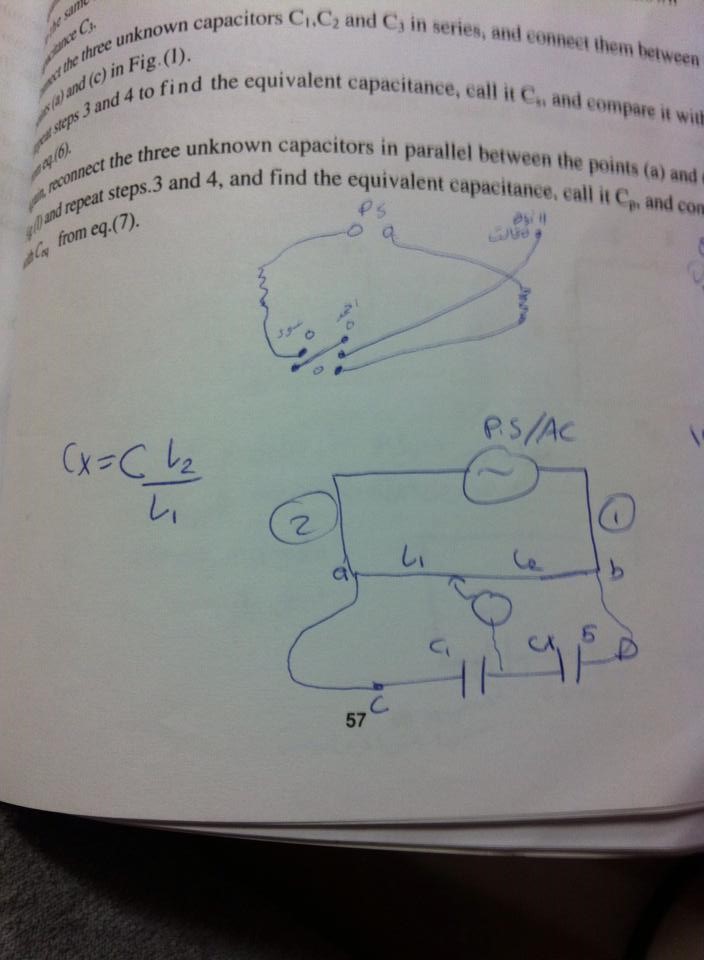 the same
C₃.
the three unknown capacitors C₁,C₂ and C₃ in series, and connect them between
(a) and (c) in Fig.(1).
steps 3 and 4 to find the equivalent capacitance, call it Cₛ, and compare it with
eq.(6).
reconnect the three unknown capacitors in parallel between the points (a) and
and repeat steps.3 and 4, and find the equivalent capacitance, call it Cₚ, and
from eq.(7).
PS
Cx=C L₂
L₁
P.S/AC
2
1
a
L₁
b
C₁
Cx
5
D
C
57